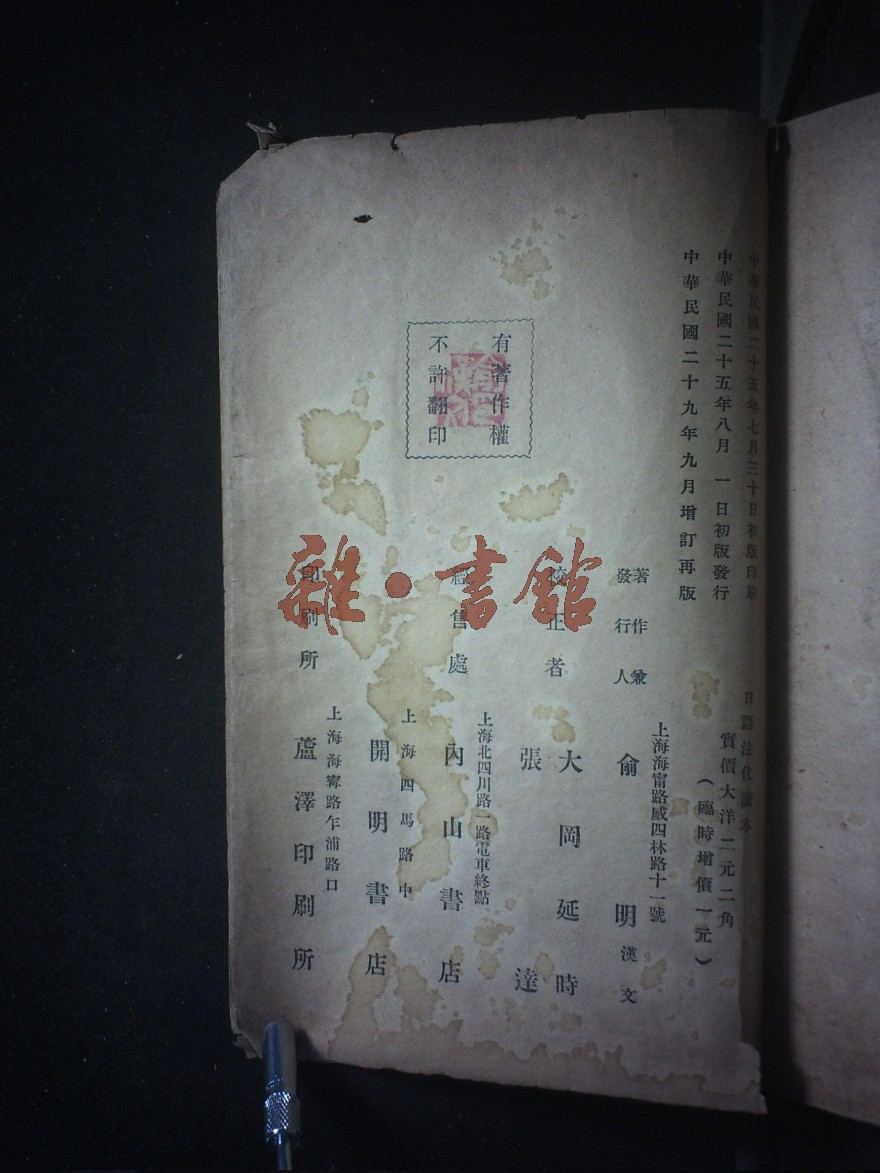 中華民國二十五年七月三十日初版印刷
中華民國二十五年八月一日初版發行
中華民國二十九年九月增訂再版
有著作權
不許翻印
日語法化讀本
實價大洋二元二角
（臨時增價一元）
著作兼
發行人
上海海甯路威四林路十一號
俞明 漢文
校正者
大岡延時
張達
經售處
上海北四川路一路電車終點
內山書店
上海四馬路中
開明書店
印刷所
上海海寧路乍浦路口
蘆澤印刷所
雜·書館